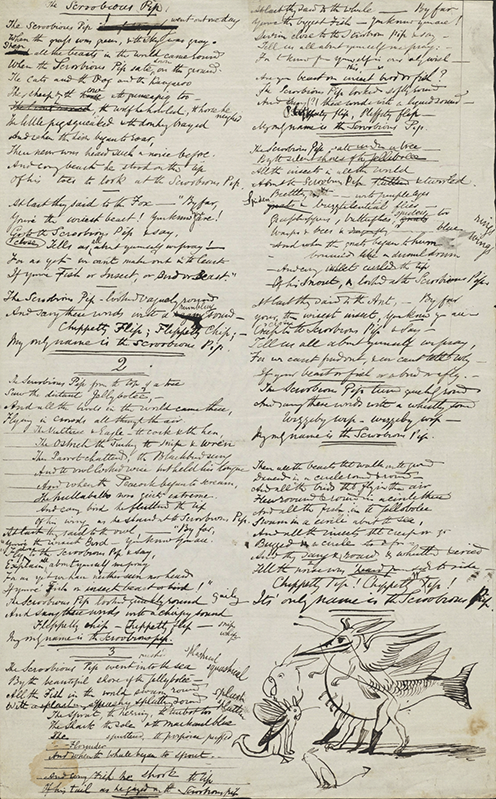 The Scroobious Pip.
The Scroobious Pip went out one day
When the grass was green, and the sky was grey
Then all the beasts in the world came round
When the Scroobious Pip sate down on the ground.
The Cats and the Dog and the Kangaroo
The Sheep and the Cow and the guineapig too
The wolf he howled, the horse he neighed
The little pig squeaked and the donkey brayed
And when the lion began to roar,
There never was heard such a noise before.
And every beast he stood on the tip
Of his toes to look at the Scroobious Pip.
At last they said to the Fox — "By far,
You're the wisest beast! You know you are!
Go to the Scroobious Pip & say,
Tell us all about yourself we pray! —
For as yet we can't make out in the least
If you're Fish or Insect, or Bird or Beast."
The Scroobious Pip looked vaguely round
And sang these words with a rumbling sound —
Chippetty Flip; Flippetty Chip; —
My only name is the Scroobious Pip.
2
The Scroobious Pip from the top of a tree
Saw the distant Jellybolee, —
And all the birds in the world came there,
Flying in crowds all through the air.
The Vulture & Eagle, the cock & the hen
The Ostrich the Turkey the Snipe & Wren
The Parrot chattered, the Blackbird sung
And the owl looked wise but held his tongue
And when the Peacock began to scream,
The hullabaloo was quite extreme.
And every bird he fluttered the tip
Of his wing as he stared at the Scroobious Pip.
At last they said to the owl "By far,
You're the wisest Bird — you know you are!
Fly to the Scroobious Pip & say,
Explain about yourself we pray
For as yet we have neither seen nor heard
If you're Fish or insect beast or bird!"
The Scroobious Pip looked gaily round
And sang these words with a chirpy sound
Flippetty chip — Chippetty flip
My only name is the Scroobious pip.
3
The Scroobious Pip went into the sea
By the beautiful shore of the Jellybolee —
All the Fish in the world swam round
With a splashy squashy spluttery sound
The Sprat, the herring, the turbot too
The shark the sole & the mackerel blue
The flounder spluttered, the porpoise puffed
And when the whale began to spout
And every Fish he shook the tip
Of his tail as he gazed on the Scroobious pip
At last they said to the whale — By far
You're the biggest Fish — you know you are!
Swim close to the Scroobious Pip & say —
Tell us all about yourself we pray —
For to know from yourself is our only wish
Are you beast or insect bird or fish?
The Scroobious Pip looked softly round
And sung these words with a liquid sound —
Pliffity flip, Pliffety flip —
My only name is the Scroobious Pip.
The Scroobious Pip sate under a tree
By the silent shores of the Jellybolee
All the insects in all the world
About the Scroobious Pip fluttered & twirled.
Beetles and
Spiders
Butterflies
And when the gnat began to hum
bounced like a dismal drum —
And every insect curled the tip
Of his snout, & looked at the Scroobious Pip.
At last they said to the Ant, — By far
You're the wisest insect, you know you are —
Creep to the Scroobious Pip & say —
Tell us all about yourself we pray,
For we can't find out, & we can't tell why —
If you're beast or fish or a bird or a fly. —
The Scroobious Pip turned quickly round
And sang these words with a whistly sound
Wizziby wip — wizziby wip —
My only name is the Scroobious Pip.
Then all the beasts that walk on the ground
Danced in a circle round & round —
And all the birds that fly in the air
Flew round & round in a circle there
And all the fish in the Jellybolee
Swum in a circle about the sea,
And all the insects that creep or go
Buzzed in a circle to & fro —
And they sang & roared & whistled & cried
Till the noise was heard from side to side
Chippetty Tip! Chippetty Tip!
Its only name is the Scroobious Pip.